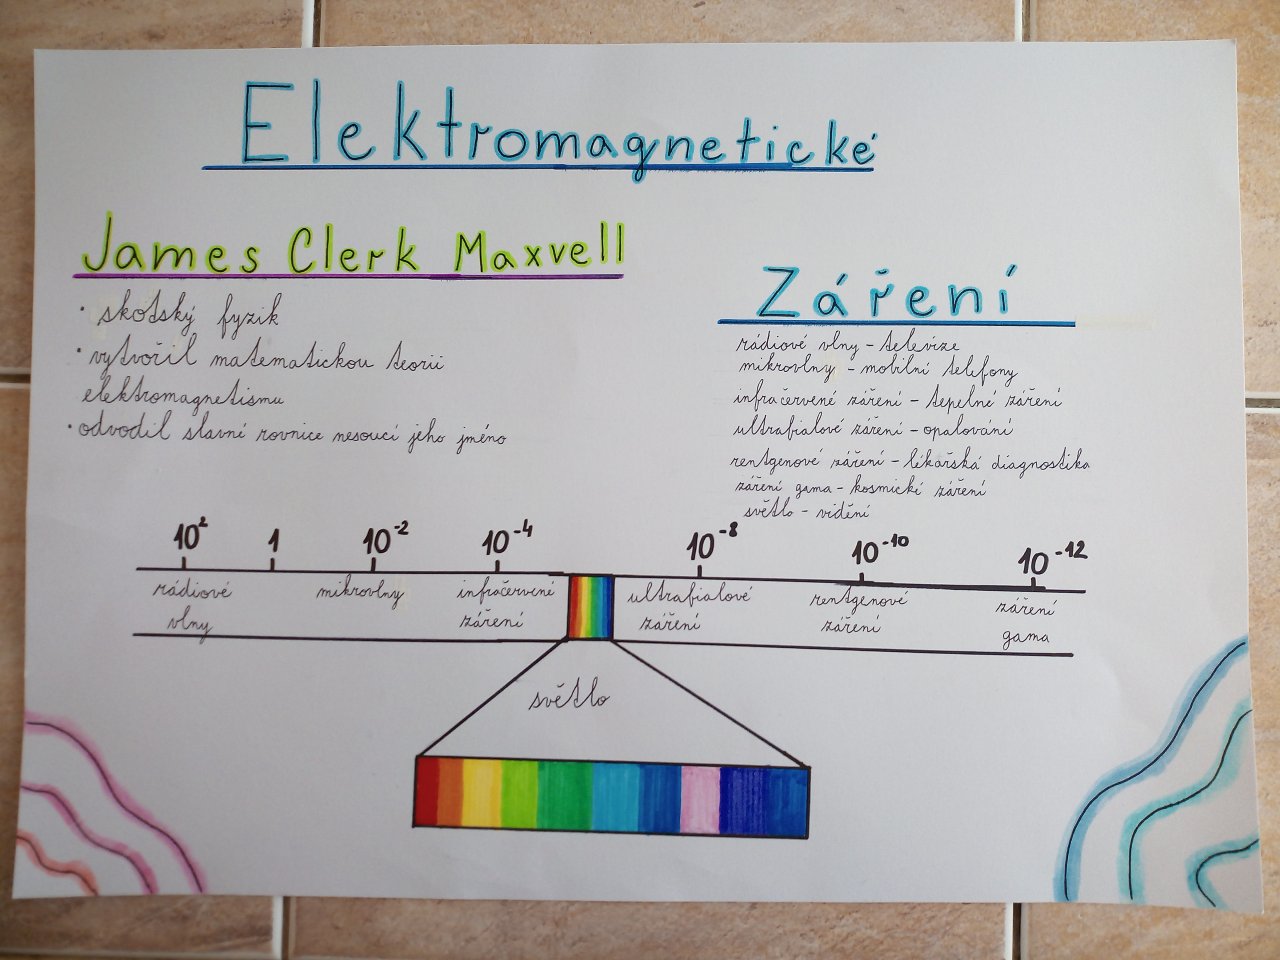 Elektromagnetické
James Clerk Maxvell
• skotský fyzik
• vytvořil matematickou teorii
elektromagnetismu
• odvodil slavné rovnice nesoucí jeho jméno
Záření
rádiové vlny - televize
mikrovlny - mobilní telefony
infračervené záření - tepelné záření
ultrafialové záření - opalování
rentgenové záření - lékařská diagnostika
záření gama - kosmické záření
světlo - vidění
10² 1 10⁻² 10⁻⁴ 10⁻⁸ 10⁻¹⁰ 10⁻¹²
rádiové vlny
mikrovlny
infračervené záření
ultrafialové záření
rentgenové záření
záření gama
světlo